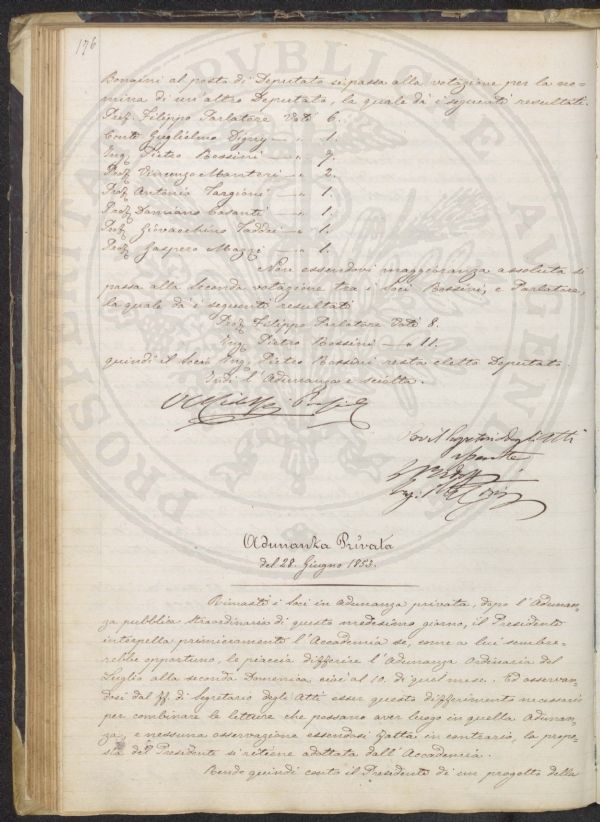 176
Bongini al posto di Deputato si passa alla votazione per la no=
mina di un altro Deputato, la quale dà i seguenti resultati.
Prof. Filippo Parlatore Voti 6.
Conte Guglielmo Digny — " 1.
Ing. Pietro Rossini — " 7.
Prof. Vincenzo Manteri — " 2.
Prof. Antonio Targioni — " 1.
Prof. Damiano Casanti — " 1.
Prof. Giovacchino Taddei — " 1.
Prof. Gaspero Mazzi — " 1.
Non essendovi maggioranza assoluta si
passa alla seconda votazione tra i Soci Rossini, e Parlatore,
la quale dà i seguenti resultati
Prof. Filippo Parlatore Voti 8.
Ing. Pietro Rossini — " 11.
quindi il Socio Ing. Pietro Rossini resta eletto Deputato.
Indi l'Adunanza è sciolta.
Per il Segretario degli Atti
assente
Adunanza Privata
del 28. Giugno 1853.
Rimasti i Soci in adunanza privata, dopo l'Adunan=
za pubblica straordinaria di questo medesimo giorno, il Presidente
interpella primieramente l'Accademia se, come a lui sembre=
rebbe opportuno, le piaccia differire l'Adunanza Ordinaria del
Luglio alla seconda Domenica, cioè al 10. di quel mese. Ed osservan=
dosi dal ff. di Segretario degli Atti esser questo differimento necessario
per combinare le letture che possano aver luogo in quella Adunan=
za, e nessuna osservazione essendosi fatta in contrario, la propo=
sta del Presidente si ritiene adottata dall'Accademia.
Rende quindi conto il Presidente di un progetto della
PROSPERITATI PVBLICAE AVGENDAE